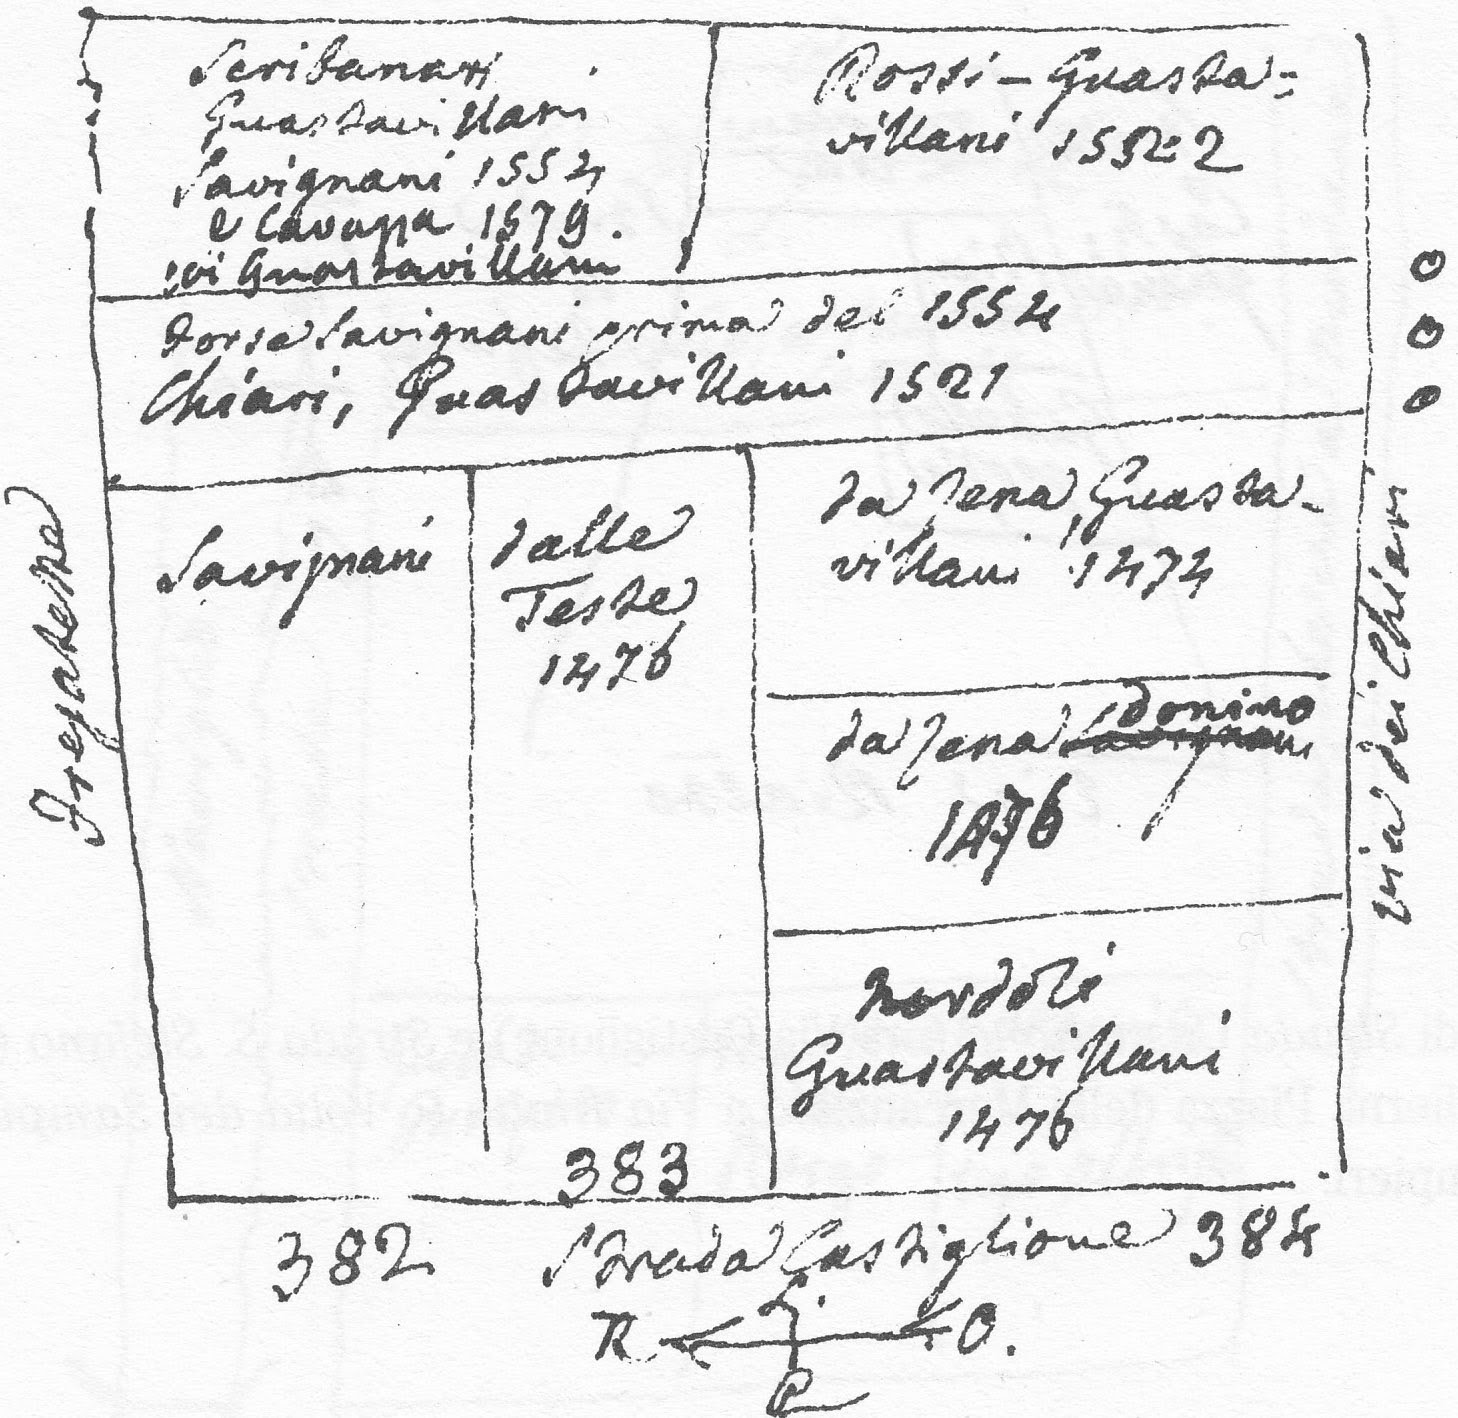 Scribanari
Guastavillani
Savignani 1554
e Cavazza 1579.
poi Guastavillani
Rossi - Guasta=
villani 1552
forse Savignani prima del 1554
Chiari, Guastavillani 1521
Savignani
dalle
Teste
1476
da Jena, Guasta-
villani 1474
da Jena Savignani
donino
1476
Guastavillani
1476
Fregatette
via dei Chiari
383
382 Strada Castiglione 384
L.
R O.
P